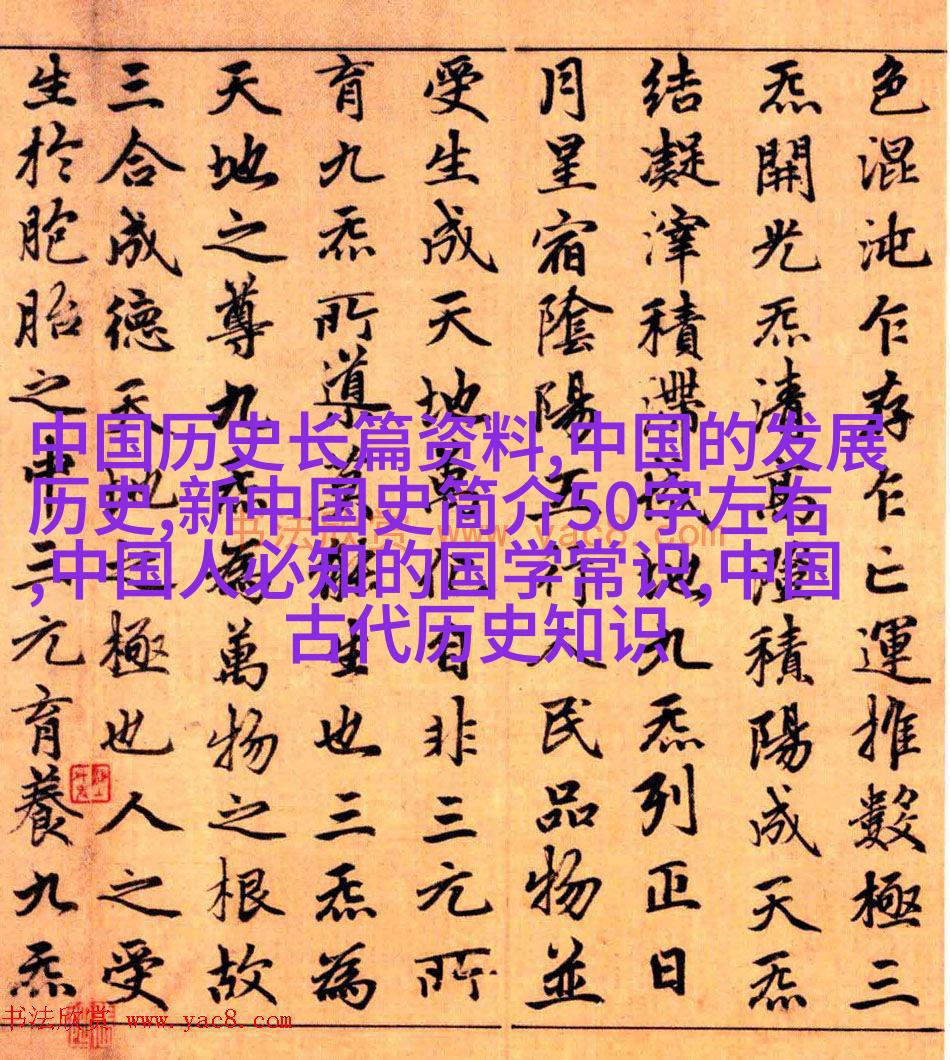 色混沌乍存乍亡運推數極三
炁開光炁清高澄積陽成天炁
結凝滓積滯成地九炁列正日
月星宿陰陽五行人民品物並
受生成天地萬化自非三元所
育九炁所導莫能生也三炁為
天地之尊九炁為萬物之根故
三合成德天地之極也人之受
生於胞胎之中三元育養九炁
中国历史长篇资料,中国的发展
历史,新中国史简介50字左右
,中国人必知的国学常识,中国
古代历史知识
书法欣赏 www.yac8.com
书法欣赏 www.yac8.com